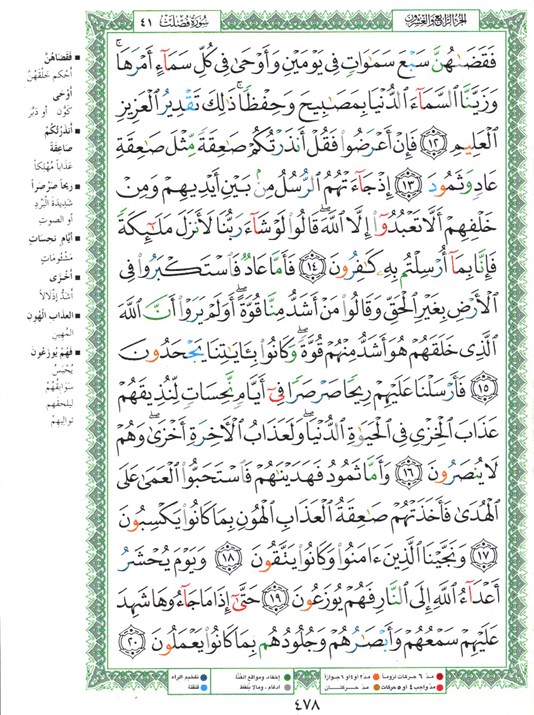 الجزء الرابع والعشرون
سُورَةُ فُصِّلَتْ ٤١
فَقَضَىٰهُنَّ سَبْعَ سَمَٰوَاتٍ فِى يَوْمَيْنِ وَأَوْحَىٰ فِى كُلِّ سَمَآءٍ أَمْرَهَا ۚ
وَزَيَّنَّا ٱلسَّمَآءَ ٱلدُّنْيَا بِمَصَٰبِيحَ وَحِفْظًا ۚ ذَٰلِكَ تَقْدِيرُ ٱلْعَزِيزِ
ٱلْعَلِيمِ ۝١٢ فَإِنْ أَعْرَضُوا۟ فَقُلْ أَنذَرْتُكُمْ صَٰعِقَةً مِّثْلَ صَٰعِقَةِ
عَادٍ وَثَمُودَ ۝١٣ إِذْ جَآءَتْهُمُ ٱلرُّسُلُ مِنۢ بَيْنِ أَيْدِيهِمْ وَمِنْ
خَلْفِهِمْ أَلَّا تَعْبُدُوٓا۟ إِلَّا ٱللَّهَ ۖ قَالُوا۟ لَوْ شَآءَ رَبُّنَا لَأَنزَلَ مَلَٰٓئِكَةً
فَإِنَّا بِمَآ أُرْسِلْتُم بِهِۦ كَٰفِرُونَ ۝١٤ فَأَمَّا عَادٌ فَٱسْتَكْبَرُوا۟ فِى
ٱلْأَرْضِ بِغَيْرِ ٱلْحَقِّ وَقَالُوا۟ مَنْ أَشَدُّ مِنَّا قُوَّةً ۖ أَوَلَمْ يَرَوْا۟ أَنَّ ٱللَّهَ
ٱلَّذِى خَلَقَهُمْ هُوَ أَشَدُّ مِنْهُمْ قُوَّةً ۖ وَكَانُوا۟ بِـَٔايَٰتِنَا يَجْحَدُونَ
۝١٥ فَأَرْسَلْنَا عَلَيْهِمْ رِيحًا صَرْصَرًا فِىٓ أَيَّامٍ نَّحِسَاتٍ لِّنُذِيقَهُمْ
عَذَابَ ٱلْخِزْىِ فِى ٱلْحَيَوٰةِ ٱلدُّنْيَا ۖ وَلَعَذَابُ ٱلْـَٔاخِرَةِ أَخْزَىٰ ۖ وَهُمْ
لَا يُنصَرُونَ ۝١٦ وَأَمَّا ثَمُودُ فَهَدَيْنَٰهُمْ فَٱسْتَحَبُّوا۟ ٱلْعَمَىٰ عَلَى
ٱلْهُدَىٰ فَأَخَذَتْهُمْ صَٰعِقَةُ ٱلْعَذَابِ ٱلْهُونِ بِمَا كَانُوا۟ يَكْسِبُونَ
۝١٧ وَنَجَّيْنَا ٱلَّذِينَ ءَامَنُوا۟ وَكَانُوا۟ يَتَّقُونَ ۝١٨ وَيَوْمَ يُحْشَرُ
أَعْدَآءُ ٱللَّهِ إِلَى ٱلنَّارِ فَهُمْ يُوزَعُونَ ۝١٩ حَتَّىٰٓ إِذَا مَا جَآءُوهَا شَهِدَ
عَلَيْهِمْ سَمْعُهُمْ وَأَبْصَٰرُهُمْ وَجُلُودُهُم بِمَا كَانُوا۟ يَعْمَلُونَ ۝٢٠
■ فَقَضَاهُنَّ
أحكم خَلْقَهُنَّ
■ أوْحَى
كَوَّن أو دَبَّر
■ أنْذَرْتُكُمْ
صَاعِقَةً
عَذَاباً مُهْلِكاً
■ رِيحاً صَرْصَراً
شَدِيدَةَ الْبَرْدِ
أو الصوتِ
■ أيَّامٍ نَحِسَاتٍ
مَشْئُومَاتٍ
■ أخْزَى
أشَدُّ إذْلَالاً
■ العذاب الْهُون
المُهِين
■ فَهُمْ يُوزَعُونَ
يُحْبَسُ
سَوَابِقُهُمْ
ليلحقهم
تَواليهمْ
● مدّ ٦ حركات لزوماً ● مدّ ٢ أو ٤ أو ٦ جوازاً
● مدّ واجب ٤ أو ٥ حركات ● مدّ حركتان
● إخفاء، ومواقع الغُنَّة
● ادغام، وما لا يُلفظ
● تفخيم الراء
● قلقلة
٤٧٨